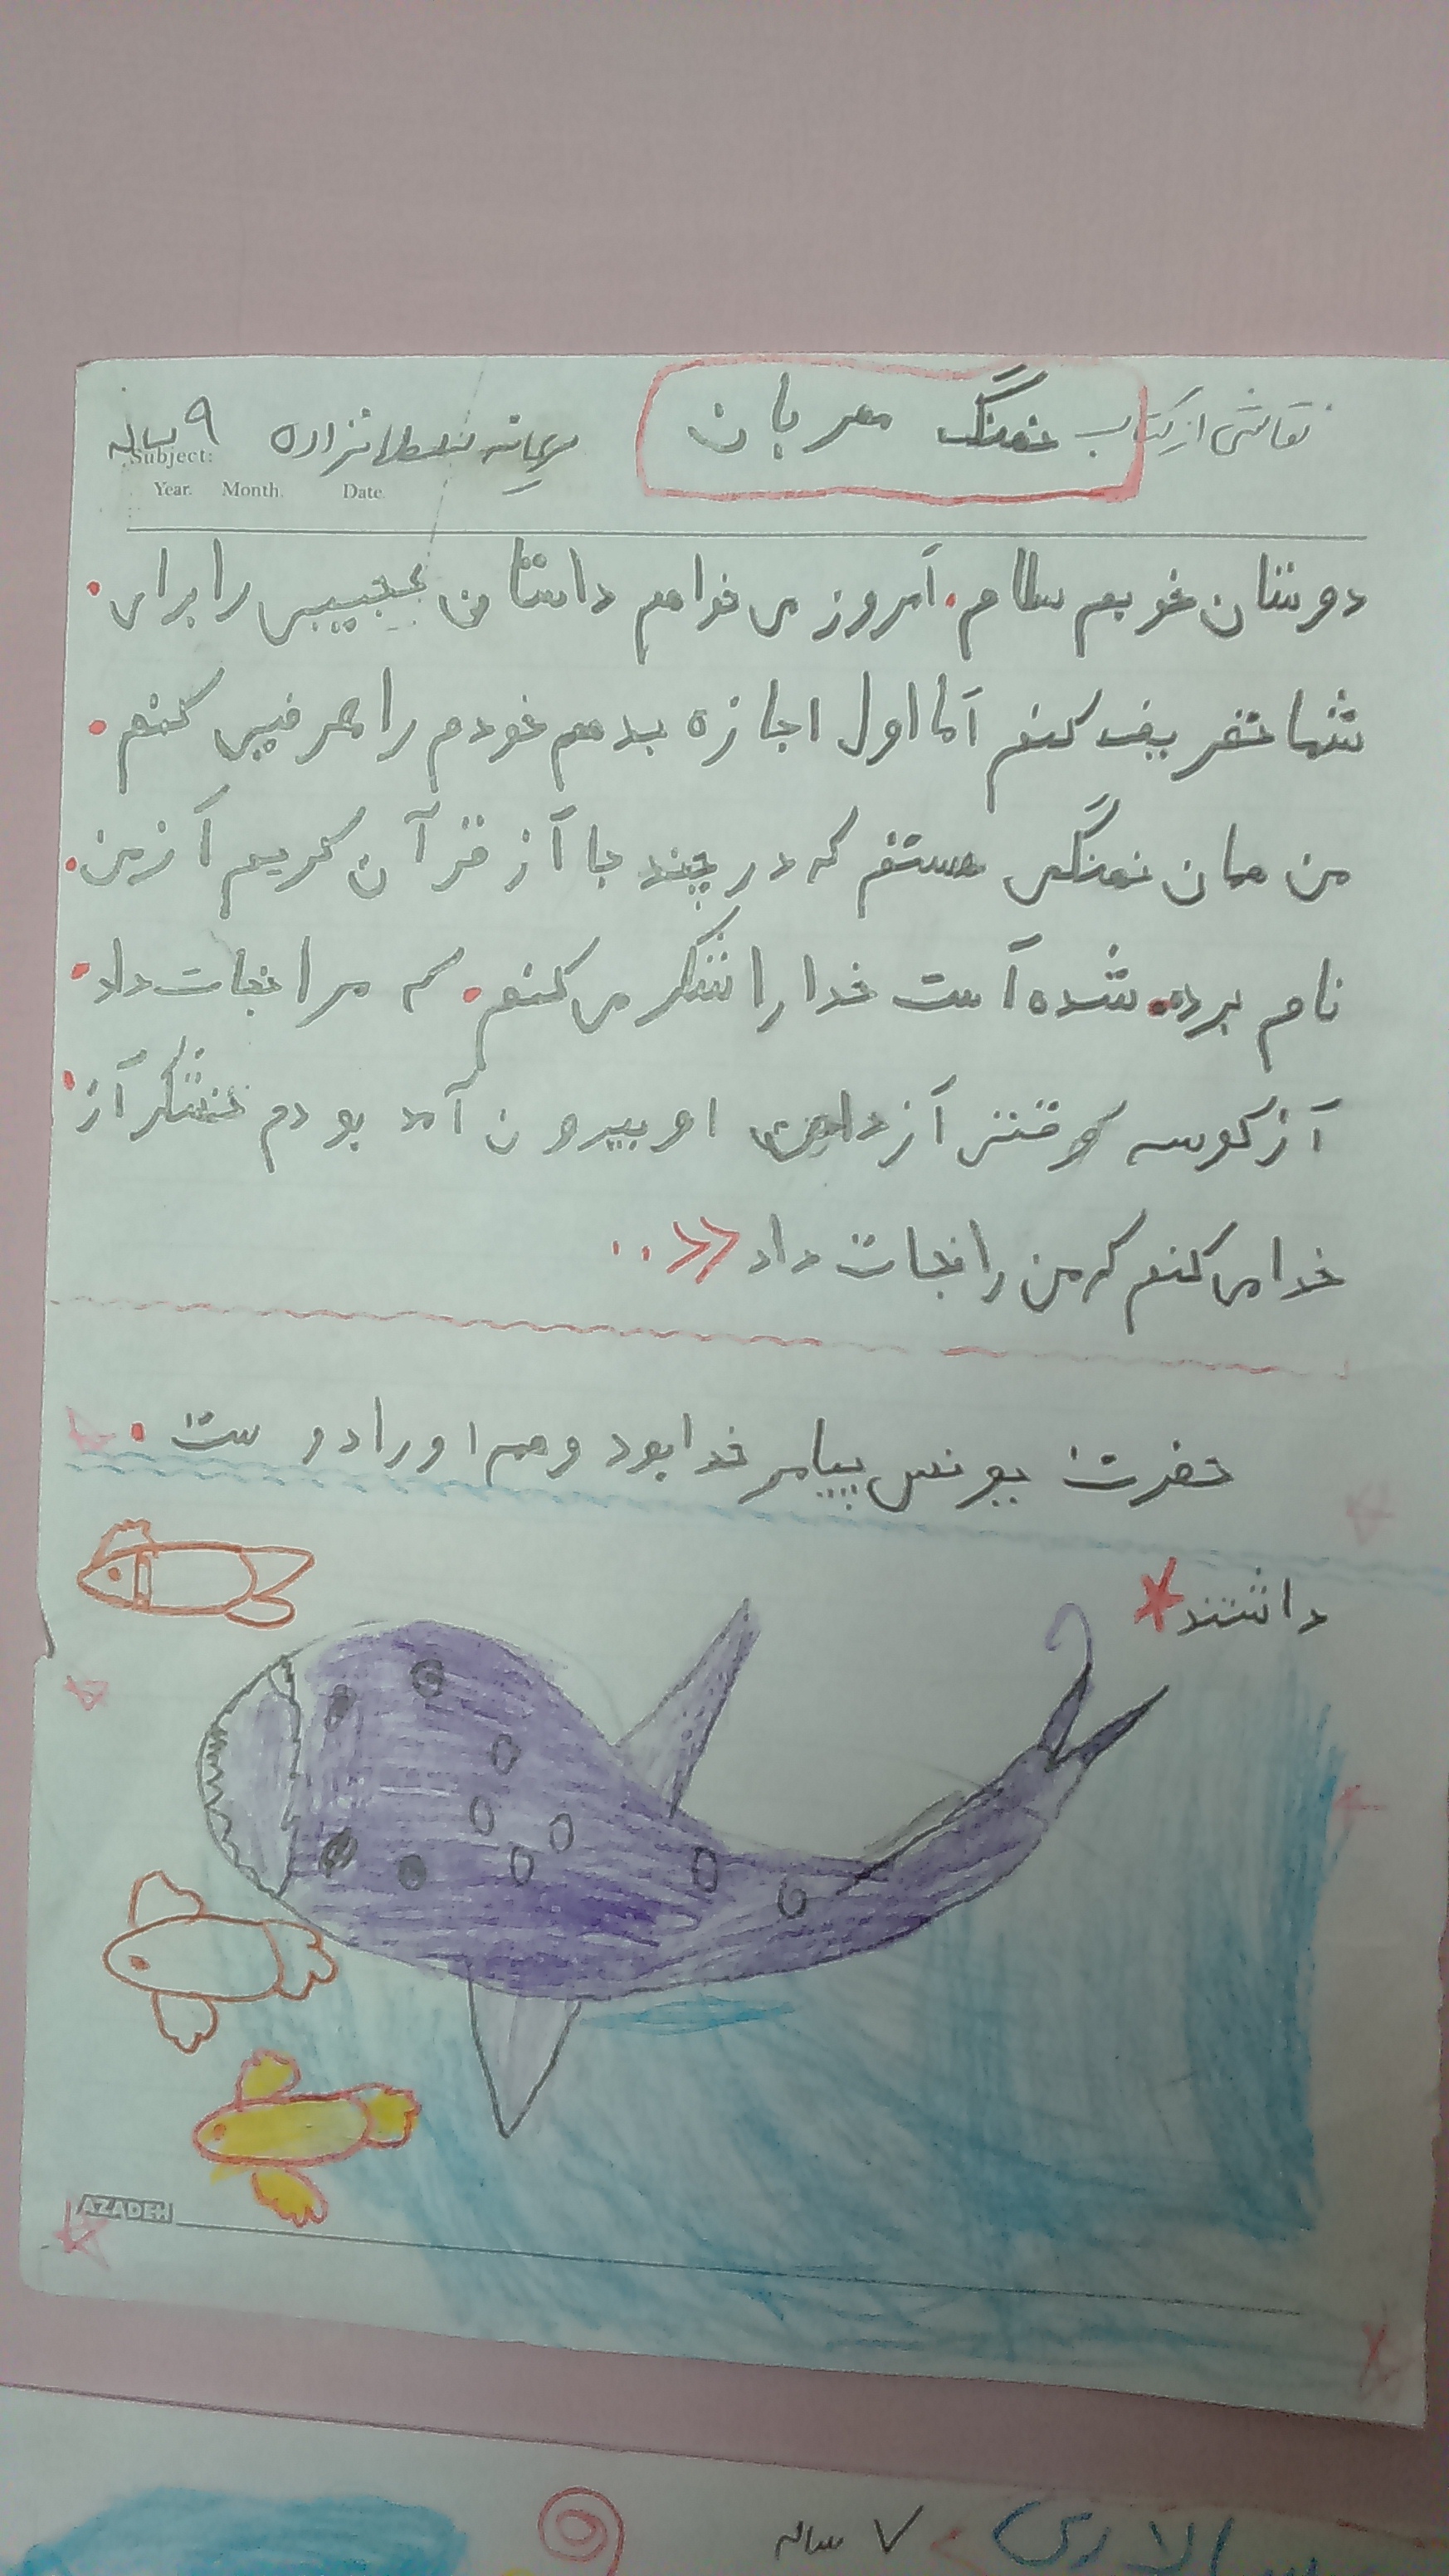 نقاشی از کتاب نهنگ مهربان
۹ ساله
Subject:
Year. Month. Date
دوستان خوبم سلام. اَمروز می خواهم داستان عجیبی را برای.
شما تعریف کنم اَما اول اجازه بدهم خودم را معرفی کنم.
من همان نهنگی هستم که در چند جا اَز قرآن کریم اَز من.
نام برده شده اَست خدا را شکر می کنم. که مرا نجات داد.
اَز کوسه وقتی اَز دهن او بیرون آمد بودم تشکر اَز.
خدا می کنم که من را نجات داد >>..
حضرت یونس پیامر خدا بود و همه او را دوست.
داشتند*
AZADEH
۷ ساله